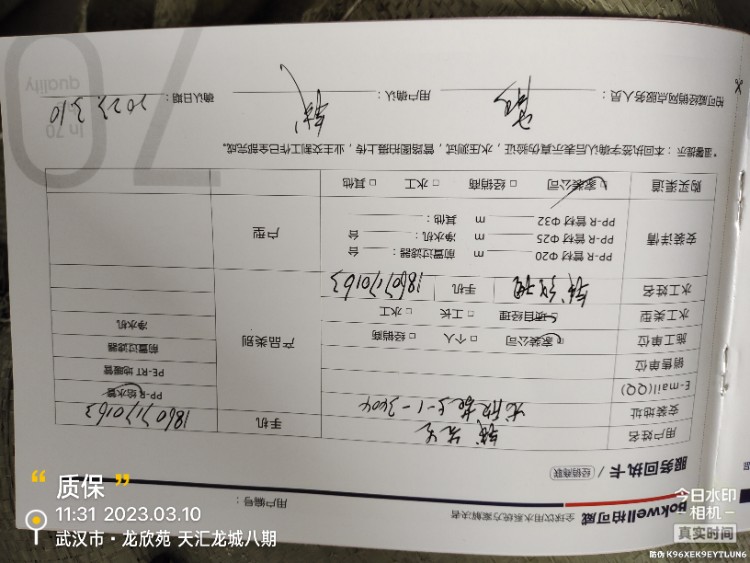 Bokwell柏可威
全球饮用水系统方案解决者
用户编号：
服务回执卡 / 经销商联
用户姓名
手机 18607170163
安装地址
E-mail(QQ)
销售单位
施工单位 家装公司 □ 个人 □ 经销商
水工类型 项目经理 □ 工长 □ 水工
水工姓名
手机 18607170163
产品类别
PP-R 给水管
PE-RT 地暖管
前置过滤器
净水机
安装详情
PP-R 管材 Φ20 m 前置过滤器： 台
PP-R 管材 Φ25 m 净水机： 台
PP-R 管材 Φ32 m 其他：
户型
购买渠道 家装公司 □ 经销商 □ 水工 □ 其他
*温馨提示：本回执签字确认后表示真伪验证，水压测试，管路图拍摄上传，业主交割工作已全部完成。
柏可威经销网点服务人员：
用户确认：
确认日期： 2023.3.10
In 70
quality
70
“质保”
11:31 2023.03.10
武汉市·龙欣苑 天汇龙城八期
今日水印
-相机-
真实时间
防伪 K96XEK9EYTLUN6